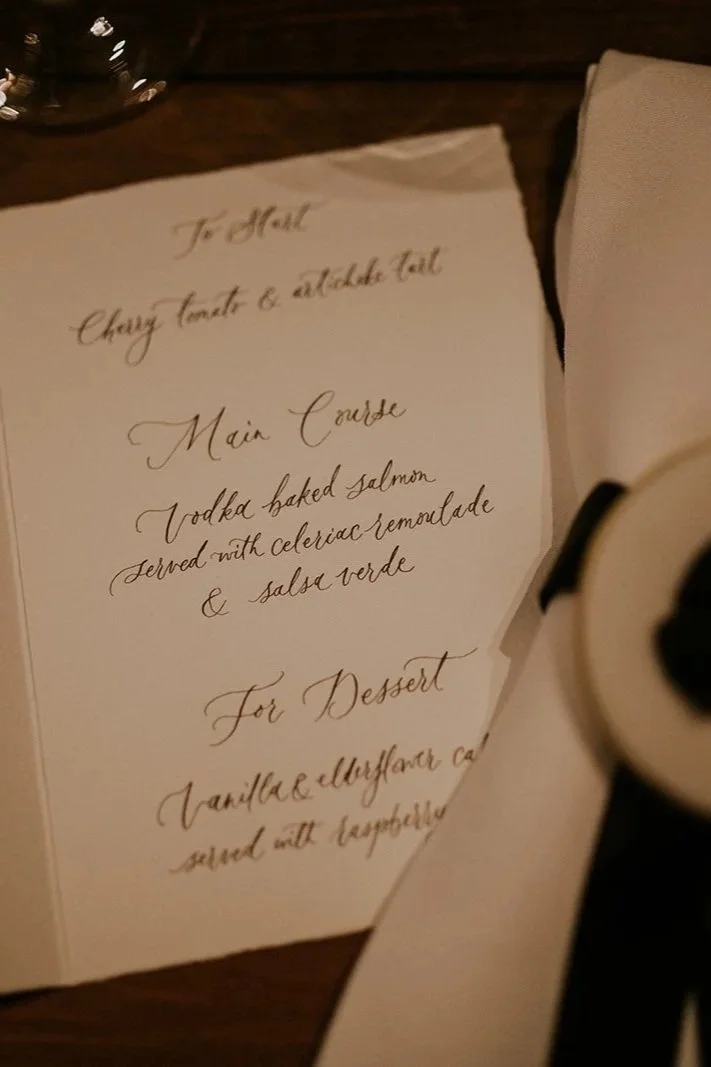 To Start
Cherry tomato & artichoke tart
Main Course
Vodka baked salmon
served with celeriac remoulade
& salsa verde
For Dessert
Vanilla & elderflower
served with raspberry